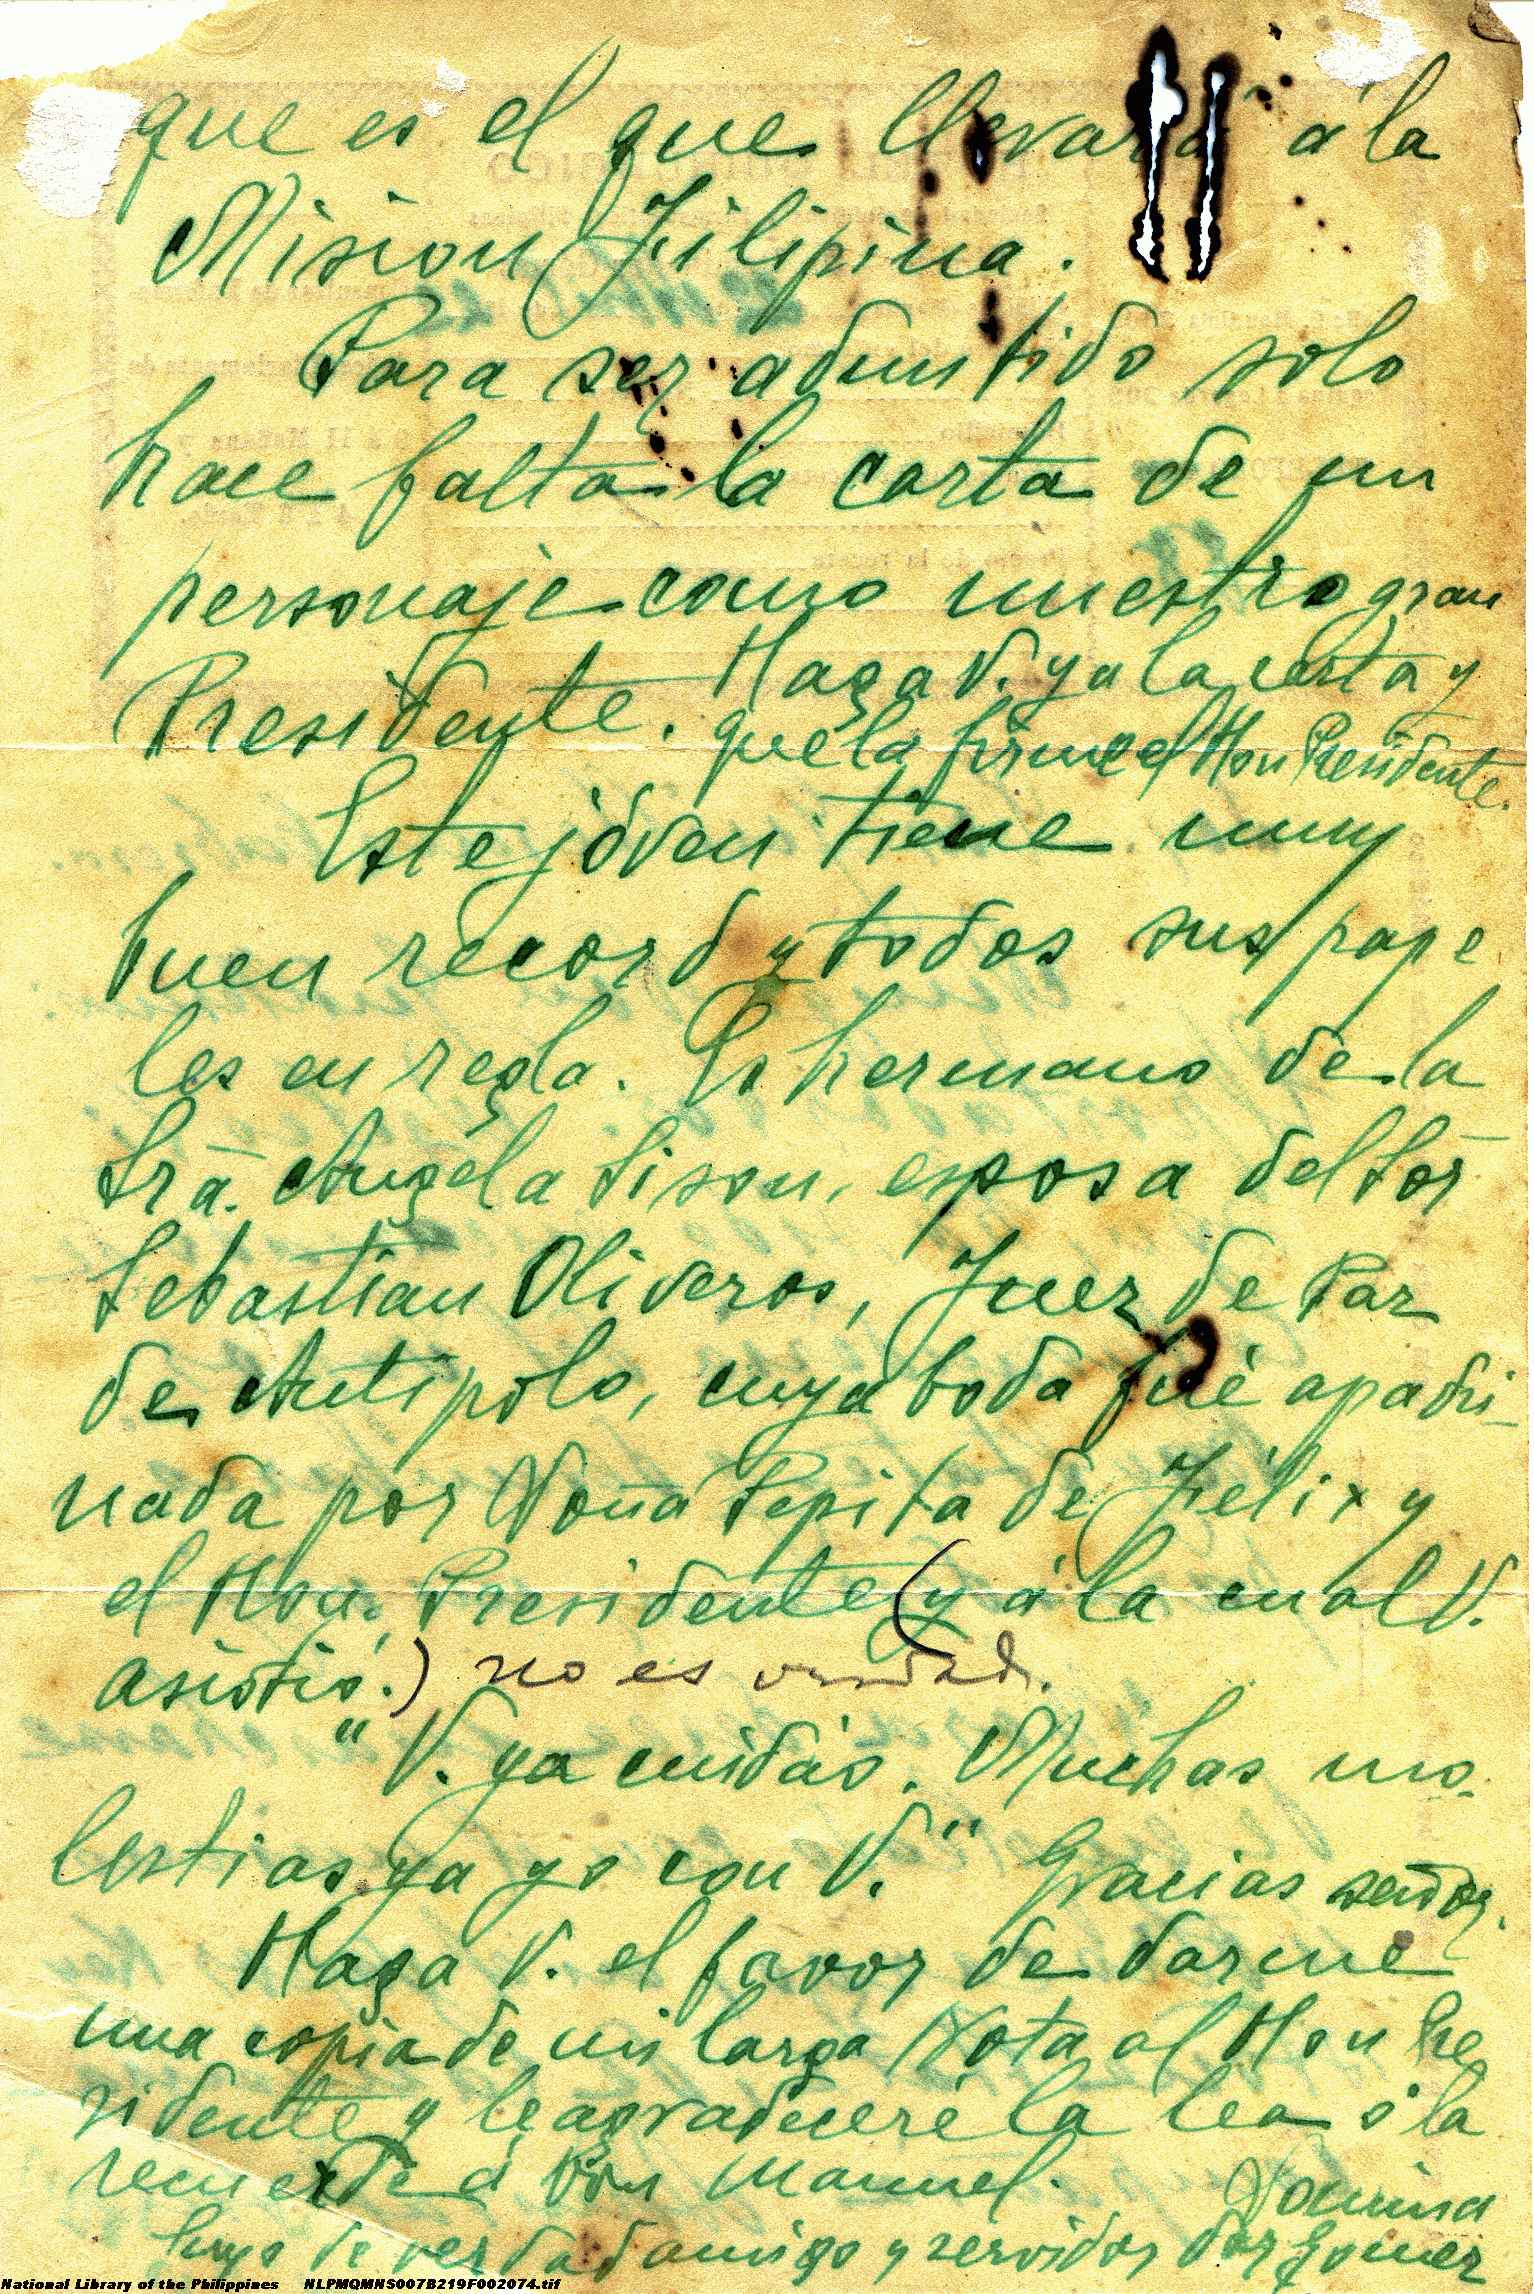 que es el que llevará á la
Mision Filipina.
Para ser admitido solo
hace falta la carta de un
personaje como nuestro gran
Presidente. Haga V. ya la carta y
que la firme el Hon Presidente.
Este jóven tiene muy
buen record y todos sus pape
les en regla. Es hermano de la
Srā. Angela Sison, esposa del Sōr
Sebastian Oliveros, Juez de Paz
de Antipolo, cuya boda fué apadri-
nada por Doña Pepita de Félix y
el Hon. Presidente (y á la cual V.
asistió.) no es verdad.
"V. ya cuidás. Muchas mo-
lestias ya yo con V." Gracias señor.
Haga V. el favor de darme
una copia de mi larga Nota al Hon Pre
sidente y le agradeceré la lea ó la
recuerde á Don Manuel.
Suyo de verdad amigo y servidor
Gomez
National Library of the Philippines NLPMQMNS007B219F002074.tif